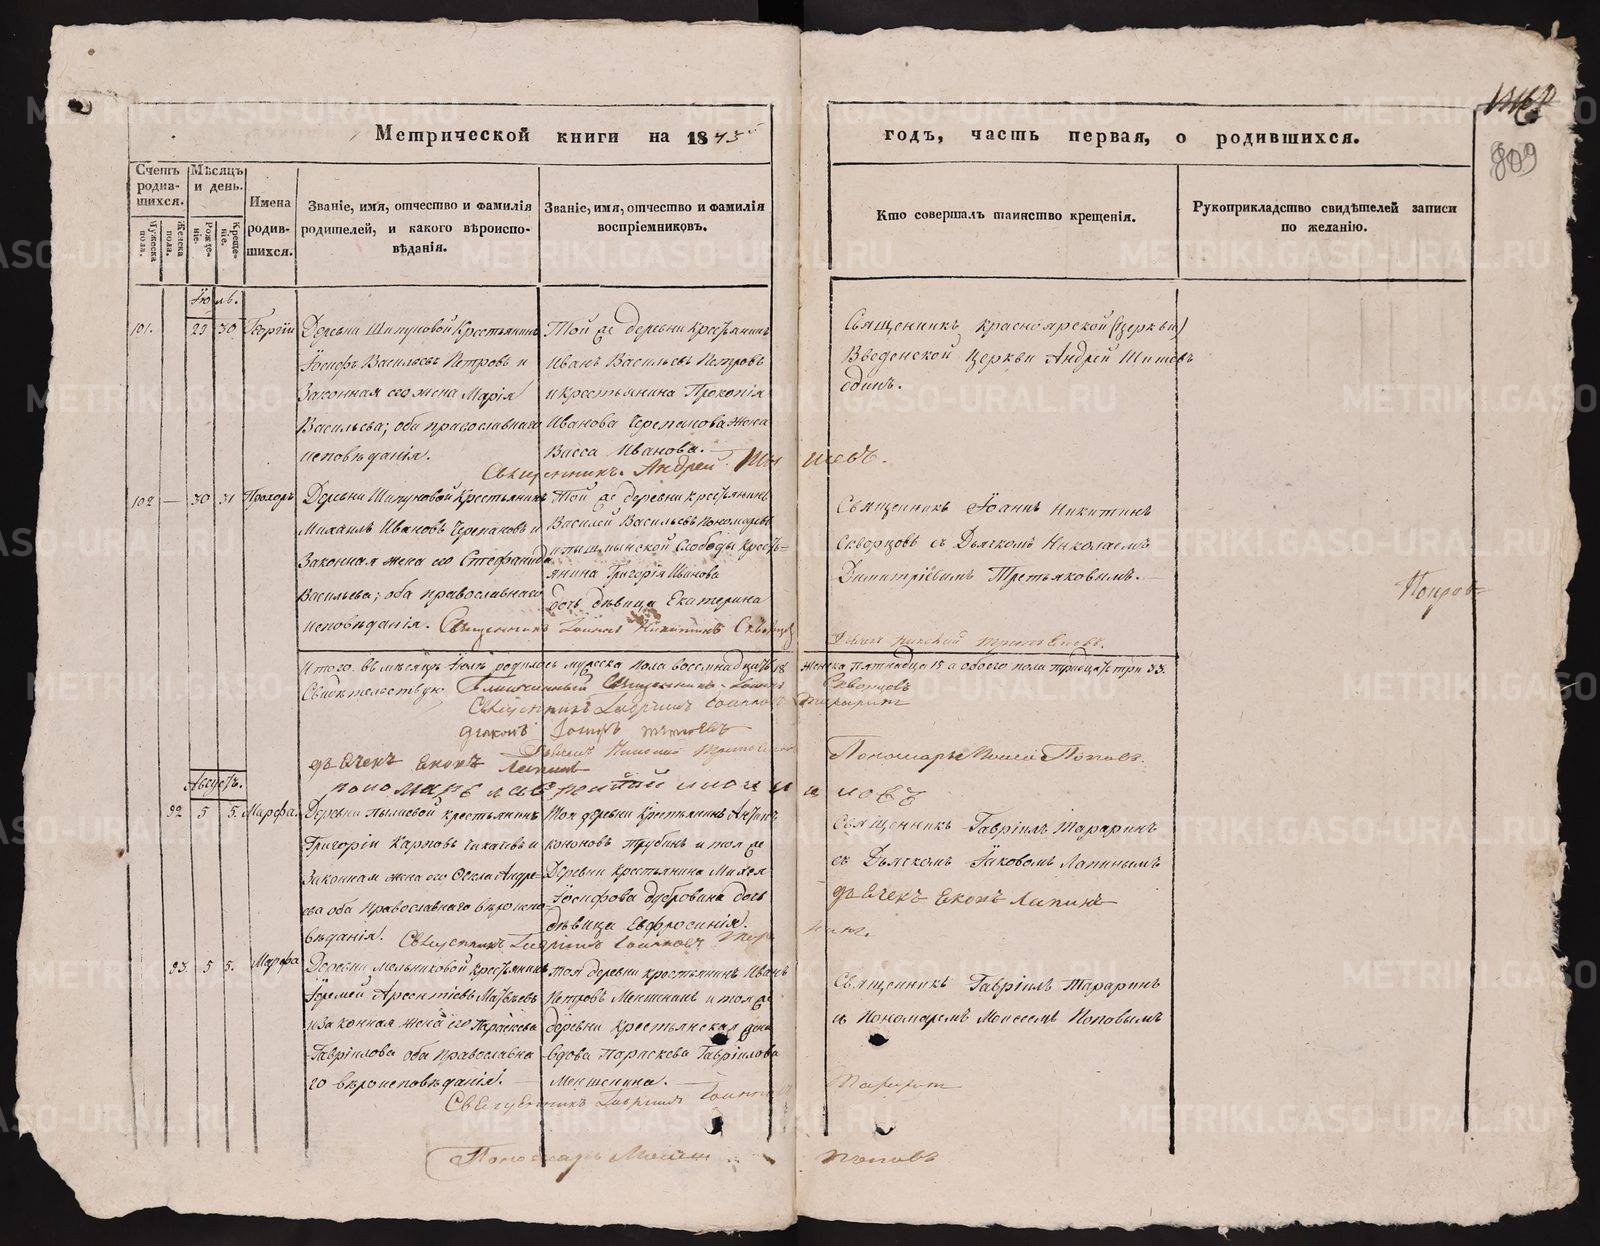 Метрической книги на 1843й годъ, часть первая, о родившихся.
809
Счетъ родившихся.
Мужеска пола.
Женска пола.
Мѣсяцъ и день.
Рожденіе.
Крещеніе.
Имена родившихся.
Званіе, имя, отчество и фамилія родителей, и какого вѣроисповѣданія.
Званіе, имя, отчество и фамилія воспріемниковъ.
Кто совершалъ таинство крещенія.
Рукоприкладство свидѣтелей записи по желанію.
Іюль.
101. 23 30 Георгій
Деревни Шипуновой Крестьянинъ
Іосифъ Васильевъ Петровъ и
Законная его жена Марія
Васильева; оба православнаго
исповѣданія.
Той же деревни Крестьянинъ
Иванъ Васильевъ Петровъ
и крестьянина Прокопія
Иванова Черепанова жена
Васса Иванова.
Священникъ Красноярской (Церкви)
Введенской Церкви Андрей Шишевъ
одинъ.
Священникъ Андрей Шишевъ.
102 — 30 31 Прохоръ
Деревни Шипуновой Крестьянинъ
Михаилъ Ивановъ Черепановъ и
Законная жена его Стефанида
Васильева; оба православнаго
исповѣданія.
Той же деревни Крестьянинъ
Василей Васильевъ Пономаревъ
и пышминской Слободы Кресть-
янина Григорія Иванова
дочь дѣвица Екатерина
Священникъ Іоаннъ Никитинъ
Скворцовъ съ Дьячкомъ Николаемъ
Димитріевымъ Третьяковымъ.
Священникъ Іоаннъ Никитинъ Скворцовъ
Дьячекъ Николай Третьяковъ.
Итого въ мѣсяцѣ Іюлѣ родилось мужеска пола восемнадцать 18 женска пятнадцать 15 а обоего пола тридцать три 33.
Свидѣтельствую Священникъ Іоаннъ Скворцовъ
Священникъ Гавріилъ Іоанновъ Тараринъ
діаконъ
Дьячекъ Николай Третьяковъ
дьячекъ Яковъ Лапинъ
Пономарь Моисей Поповъ
пономарь
Августъ.
92 5 5. Марфа.
Деревни крестьянинъ
Григорій Карповъ и
Законная жена его Ѳекла Андре-
ева оба Православнаго вѣроиспо-
вѣданія.
Тоя деревни крестьянинъ
Кононовъ Трубинъ и тоя же
Деревни крестьянина Михея
Іосифова Дубровина дочь
дѣвица Евфросинія.
Священникъ Гавріилъ Тараринъ
съ Дьячкомъ Іаковомъ Лапинымъ
дьячекъ Яковъ Лапинъ
Священникъ Гавріилъ Іоанновъ Тараринъ.
93. 5 5. Марфа
Деревни Мельниковой крестьянинъ
Іеремей Арсентіевъ Матвѣевъ
и законная жена его Параскева
Гавріилова оба православна
го вѣроисповѣданія.
тоя деревни крестьянинъ Иванъ
Петровъ Меншенинъ и тоя же
деревни крестьянская жена
вдова Параскева Гавріилова
Меншенина.
Священникъ Гавріилъ Тараринъ
съ Пономаремъ Моисеемъ Поповымъ
Священникъ Гавріилъ Іоанновъ Тараринъ
Пономарь Моисей Поповъ